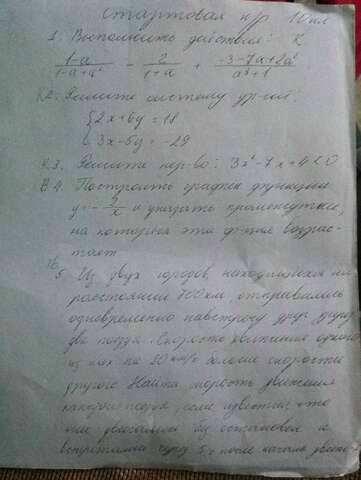 Стартовая к/р 10 кл
1. Выполните действия: К
(1-a)/(1-a+a²) - 2/(1+a) + (-3-7a+2a²)/(a³+1)
К2. Решите систему ур-ий:
{2x+6y=18
3x-5y=-29
К.3. Решите нер-во: 3x²-7x+4<0
В.4. Построить график функции
y=-5/x и указать промежутки,
на которых эта ф-ция возрас-
тает
5. Из двух городов, находящихся на
расстоянии 700 км, отправились
одновременно навстречу друг другу
два поезда. Скорость движения одного
из них на 20 км/ч больше скорости
другого. Найти скорость движения
каждого поезда, если известно, что
они
встретились через 5 ч после начала движ